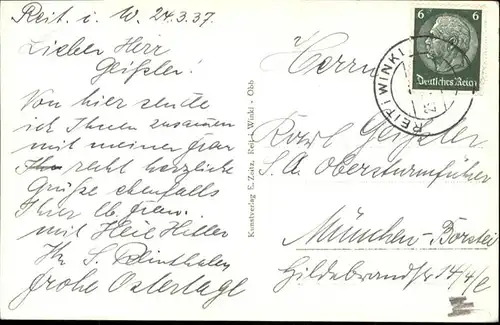 Reit. i. W. 24.3.37.
Lieber Herr
Geißler!
Von hier sende
ich Ihnen zusammen
mit meiner Frau
recht herzliche
Grüße ebenfalls
Ihrer lb. Frau.
mit Heil Hitler
Ihr
frohe Ostertage
Kunstverlag E. Zeitz, Reit i. Winkl - Obb
6 6
Deutsches Reich
REIT I WINKL
Herrn
Karl Geißler
S.A. Obersturmführer
München-Borstei
Hildebrandstr 14 4/e